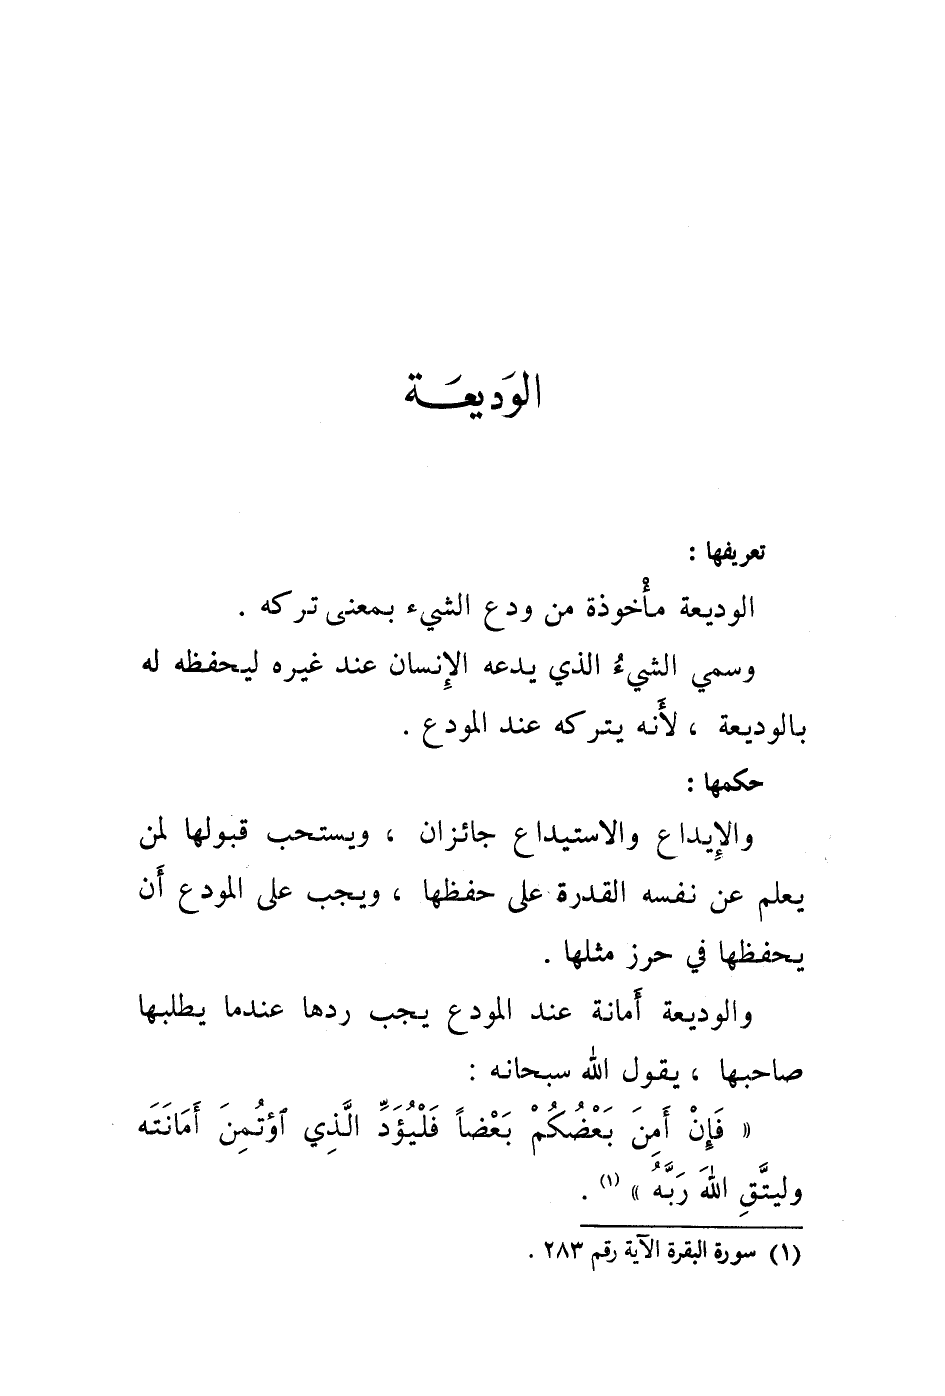 الوَديعَـة
تعريفها :
الوديعة مأْخوذة من ودع الشيء بمعنى تركه .
وسمي الشيءُ الذي يدعه الإِنسان عند غيره ليحفظه له
بالوديعة ، لأَنه يتركه عند المودع .
حكمها :
والإِيداع والاستيداع جائزان ، ويستحب قبولها لمن
يعلم عن نفسه القدرة على حفظها ، ويجب على المودع أَن
يحفظها في حرز مثلها .
والوديعة أَمانة عند المودع يجب ردها عندما يطلبها
صاحبها ، يقول الله سبحانه :
« فَإِنْ أَمِنَ بَعْضُكُمْ بَعْضاً فَلْيُؤَدِّ الَّذِي ٱؤتُمِنَ أَمَانَتَه
وليتَّقِ اللهَ رَبَّهُ » (١) .
(١) سورة البقرة الآية رقم ٢٨٣ .